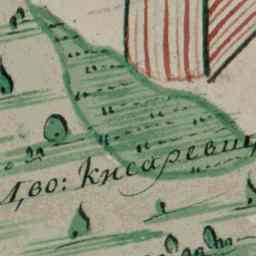 Дво: Кнсаревиц